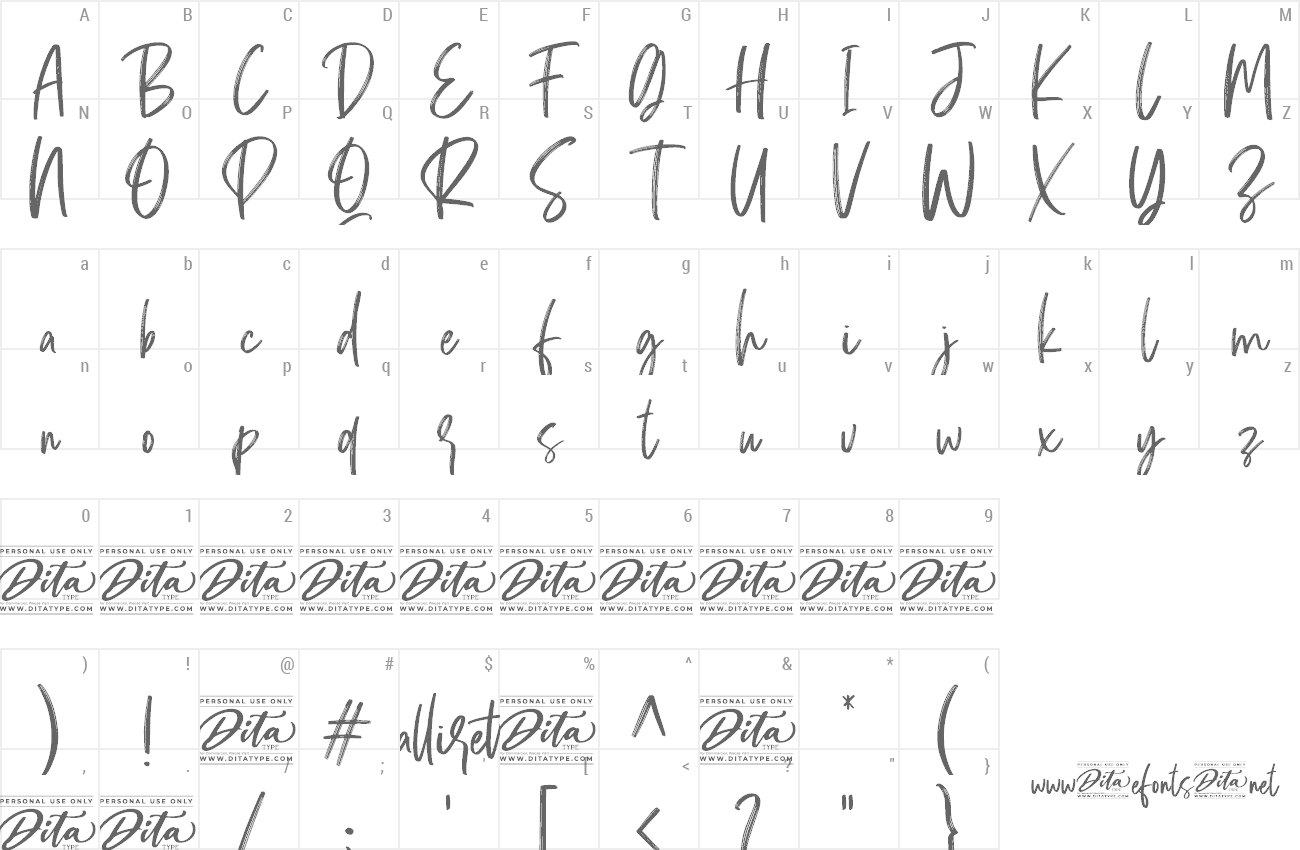 A B C D E F G H I J K L M
A B C D E F G H I J K L M
N O P Q R S T U V W X Y Z
N O P Q R S T U V W X Y Z
a b c d e f g h i j k l m
a b c d e f g h i j k l m
n o p q r s t u v w x y z
n o p q r s t u v w x y z
0 1 2 3 4 5 6 7 8 9
PERSONAL USE ONLY PERSONAL USE ONLY PERSONAL USE ONLY PERSONAL USE ONLY PERSONAL USE ONLY PERSONAL USE ONLY PERSONAL USE ONLY PERSONAL USE ONLY PERSONAL USE ONLY PERSONAL USE ONLY
Dita Dita Dita Dita Dita Dita Dita Dita Dita Dita
TYPE TYPE TYPE TYPE TYPE TYPE TYPE TYPE TYPE TYPE
WWW.DITATYPE.COM WWW.DITATYPE.COM WWW.DITATYPE.COM WWW.DITATYPE.COM WWW.DITATYPE.COM WWW.DITATYPE.COM WWW.DITATYPE.COM WWW.DITATYPE.COM WWW.DITATYPE.COM WWW.DITATYPE.COM
) ! @ # $ % ^ & * (
PERSONAL USE ONLY PERSONAL USE ONLY PERSONAL USE ONLY
) ! Dita # alliset Dita ^ Dita * (
TYPE TYPE TYPE
WWW.DITATYPE.COM WWW.DITATYPE.COM WWW.DITATYPE.COM
, . / ; ' [ < ? " }
PERSONAL USE ONLY PERSONAL USE ONLY
Dita Dita / ; ' [ < ? " }
www Dita efonts Dita net